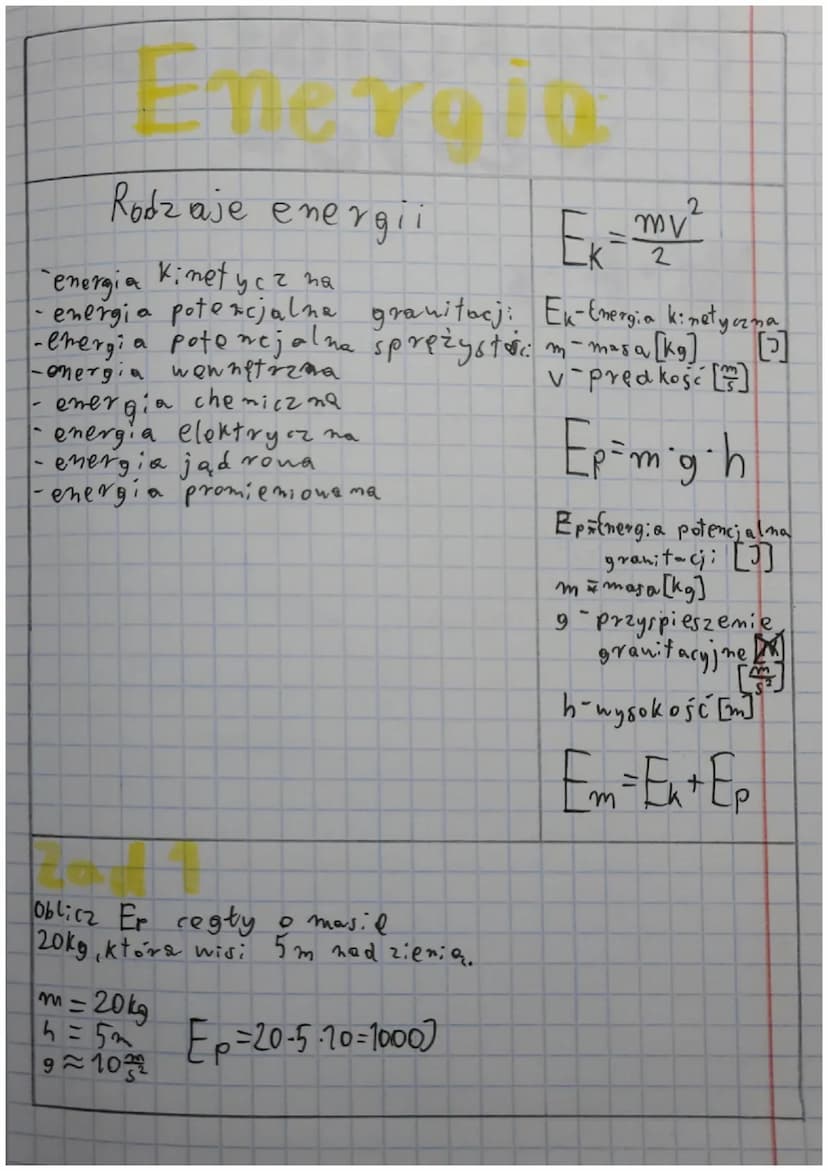 Energia
Rodzaje energii
- energia kinetyczna
- energia potencjalna grawitacji
- energia potencjalna sprężystości
- energia wewnętrzna
- energia chemiczna
- energia elektryczna
- energia jądrowa
- energia promieniowana
E_k = mv²/2
E_k - Energia kinetyczna [J]
m - masa [kg]
v - prędkość [m/s]
E_p = m · g · h
E_p - Energia potencjalna
grawitacji [J]
m - masa [kg]
g - przyspieszenie
grawitacyjne
[m/s²]
h - wysokość [m]
E_m = E_k + E_p
Zad 1
Oblicz E_p cegły o masie
20kg, która wisi 5m nad ziemią.
m = 20kg
h = 5m
g ≈ 10 m/s²
E_p = 20 · 5 · 10 = 1000J